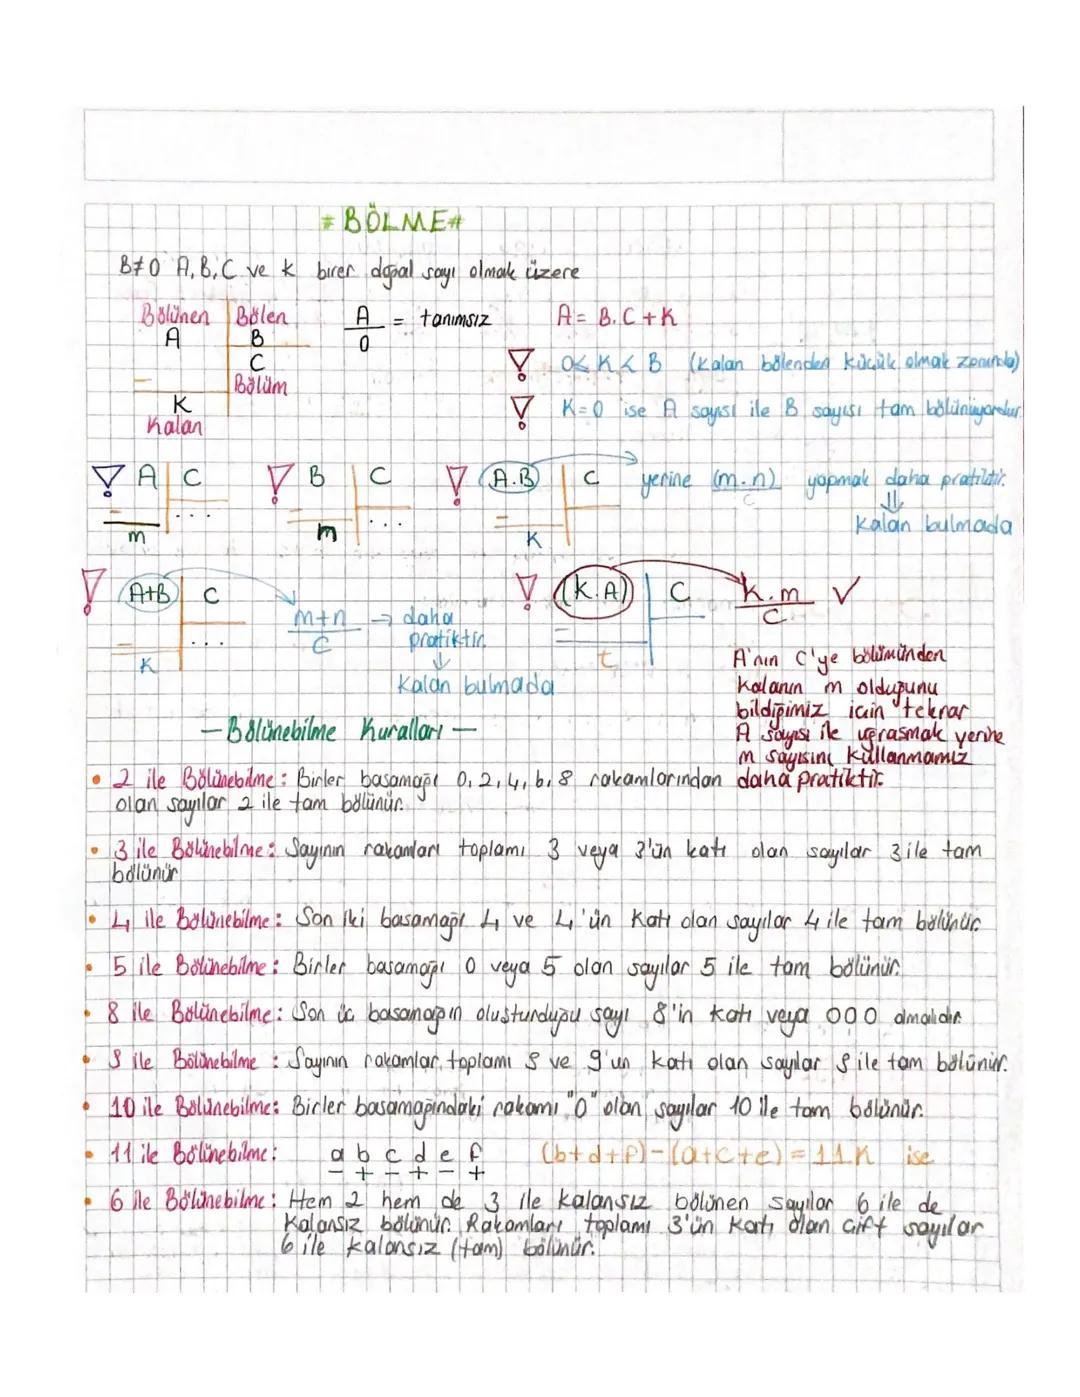 # BÖLME #
B≠0 A, B, C ve k birer doğal sayı olmak üzere
Bölünen Bölen
A B
C
Bölüm
K
Kalan
A/0 = tanımsız
A = B.C + K
! 0≤K<B (Kalan bölenden küçük olmak zorunda)
! K=0 ise A sayısı ile B sayısı tam bölünüyordur.
! A C
...
m
! B C
...
m
! (A.B) C
K
yerine (m.n)/C yapmak daha pratiktir.
⇓
Kalan bulmada
! (A+B) C
...
K
m+n/C → daha
pratiktir.
↓
Kalan bulmada
! (K.A) C
t
K.m/C ✓
A'nın C'ye bölümünden
kalanın m olduğunu
bildiğimiz için tekrar
A sayısı ile uğraşmak yerine
m sayısını kullanmamız
daha pratiktir.
— Bölünebilme Kuralları —
• 2 ile Bölünebilme: Birler basamağı 0, 2, 4, 6, 8 rakamlarından
olan sayılar 2 ile tam bölünür.
• 3 ile Bölünebilme: Sayının rakamları toplamı 3 veya 3'ün katı olan sayılar 3 ile tam
bölünür
• 4 ile Bölünebilme: Son iki basamağı 4 ve 4'ün katı olan sayılar 4 ile tam bölünür.
• 5 ile Bölünebilme: Birler basamağı 0 veya 5 olan sayılar 5 ile tam bölünür.
• 8 ile Bölünebilme: Son üç basamağın oluşturduğu sayı 8'in katı veya 000 olmalıdır.
• 9 ile Bölünebilme: Sayının rakamlar toplamı 9 ve 9'un katı olan sayılar 9 ile tam bölünür.
• 10 ile Bölünebilme: Birler basamağındaki rakamı "0" olan sayılar 10 ile tam bölünür.
• 11 ile Bölünebilme: a b c d e f (b+d+f)-(a+c+e) = 11.K ise
- + - + - +
• 6 ile Bölünebilme: Hem 2 hem de 3 ile kalansız bölünen sayılar 6 ile de
kalansız bölünür. Rakamları toplamı 3'ün katı olan çift sayılar
6 ile kalansız (tam) bölünür.